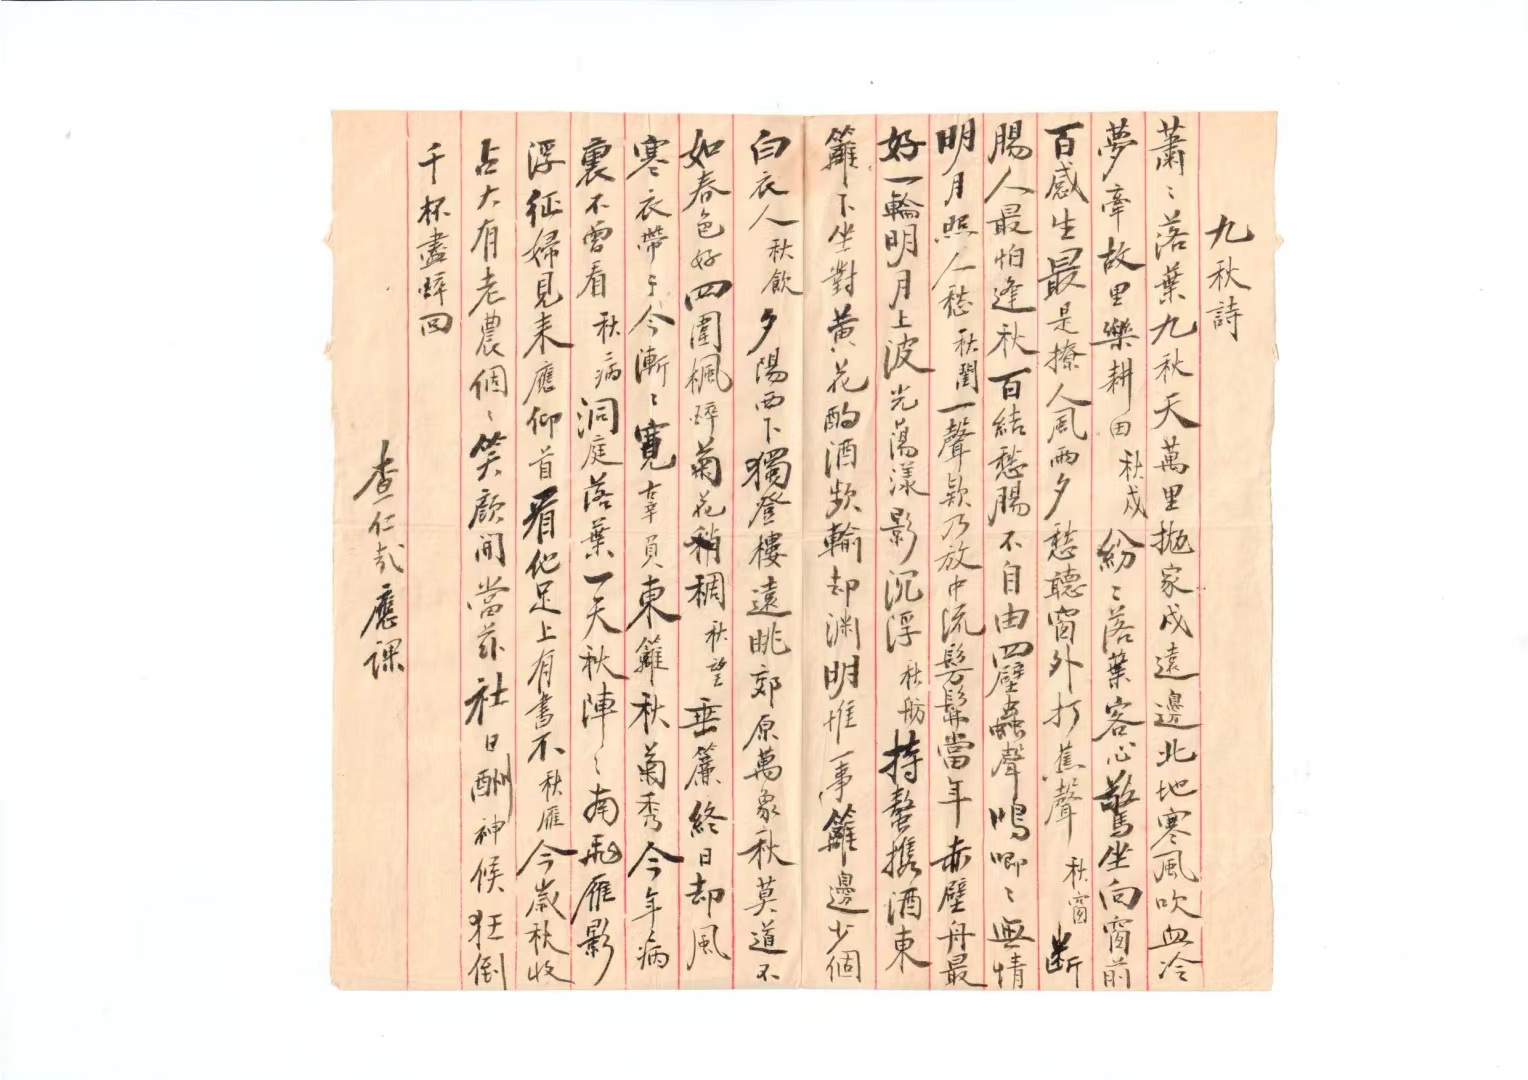 九秋詩
蕭〻落葉九秋天萬里拋家戍遠邊北地寒風吹血冷
夢牽故里樂耕田 秋戍 紛〻落葉客心驚坐向窗前
百感生最是撩人風雨夕愁聽窗外打蕉聲 秋窗 斷
腸人最怕逢秋百結愁腸不自由四壁蟲聲鳴唧〻無情
明月照人愁 秋閨 一聲欵乃放中流髣髴當年赤壁舟最
好一輪明月上波光蕩漾影沉浮 秋舫 持螯携酒東
籬〻下坐對黃花酌酒頻輸却淵明惟一事籬邊少個
白衣人 秋飲 夕陽西下獨登樓遠眺郊原萬象秋莫道不
如春色好四圍楓醉菊花稍稠 秋望 垂簾終日却風
寒衣帶于今漸〻寬辜負東籬秋菊秀今年病
裏不曾看 秋病 洞庭落葉一天秋陣〻南飛雁影
浮征婦見來應仰首看他足上有書不 秋雁 今歲秋收
占大有老農個〻笑顏開當茲社日酬神候狂倒
千杯盡醉回
查仁哉應課